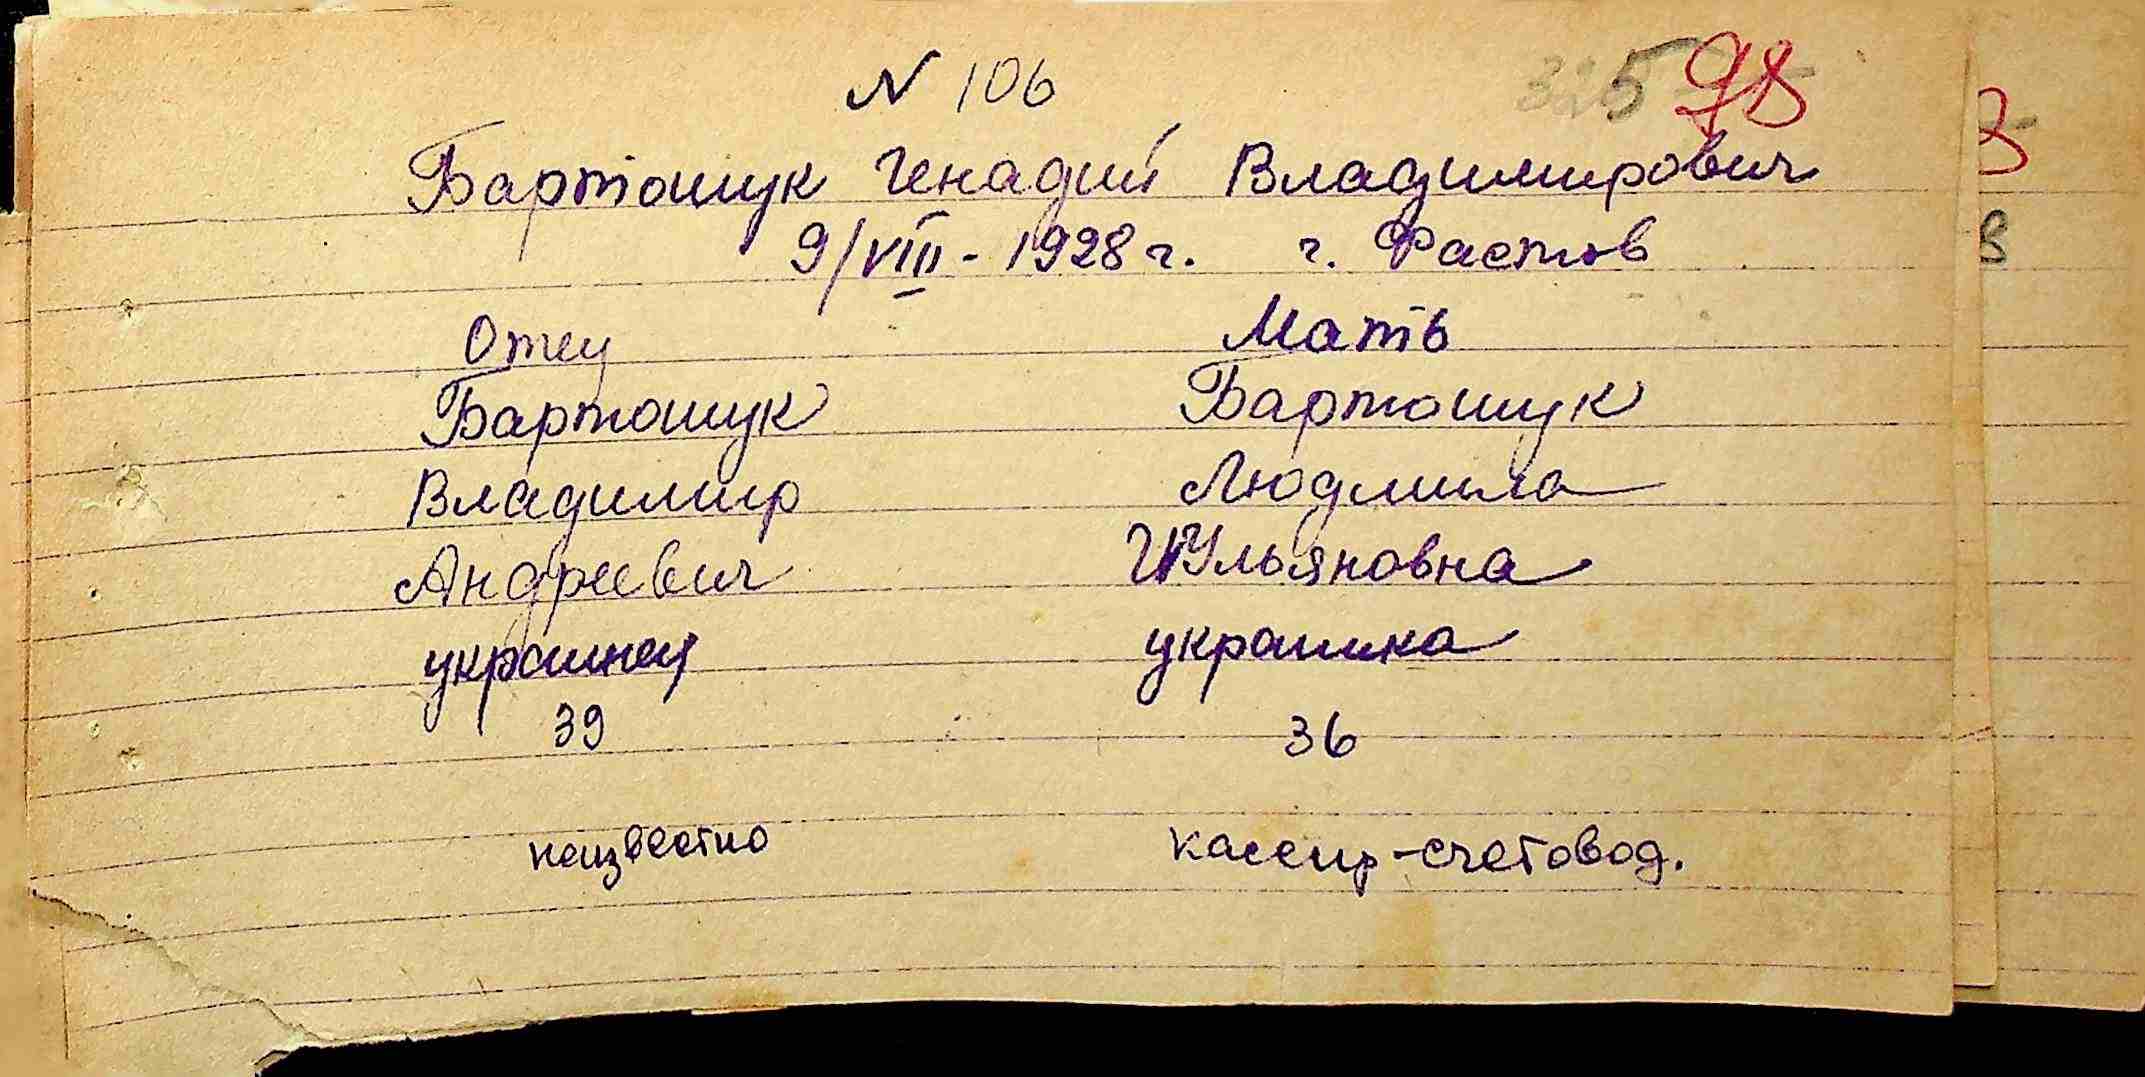 N 106
325 98
Бартошук Генадий Владимирович
9/VIII - 1928 г. г. Фастов
Отец Мать
Бартошук Бартошук
Владимир Людмила
Андреевич Ульяновна
украинец украинка
39 36
неизвестно кассир-счетовод.